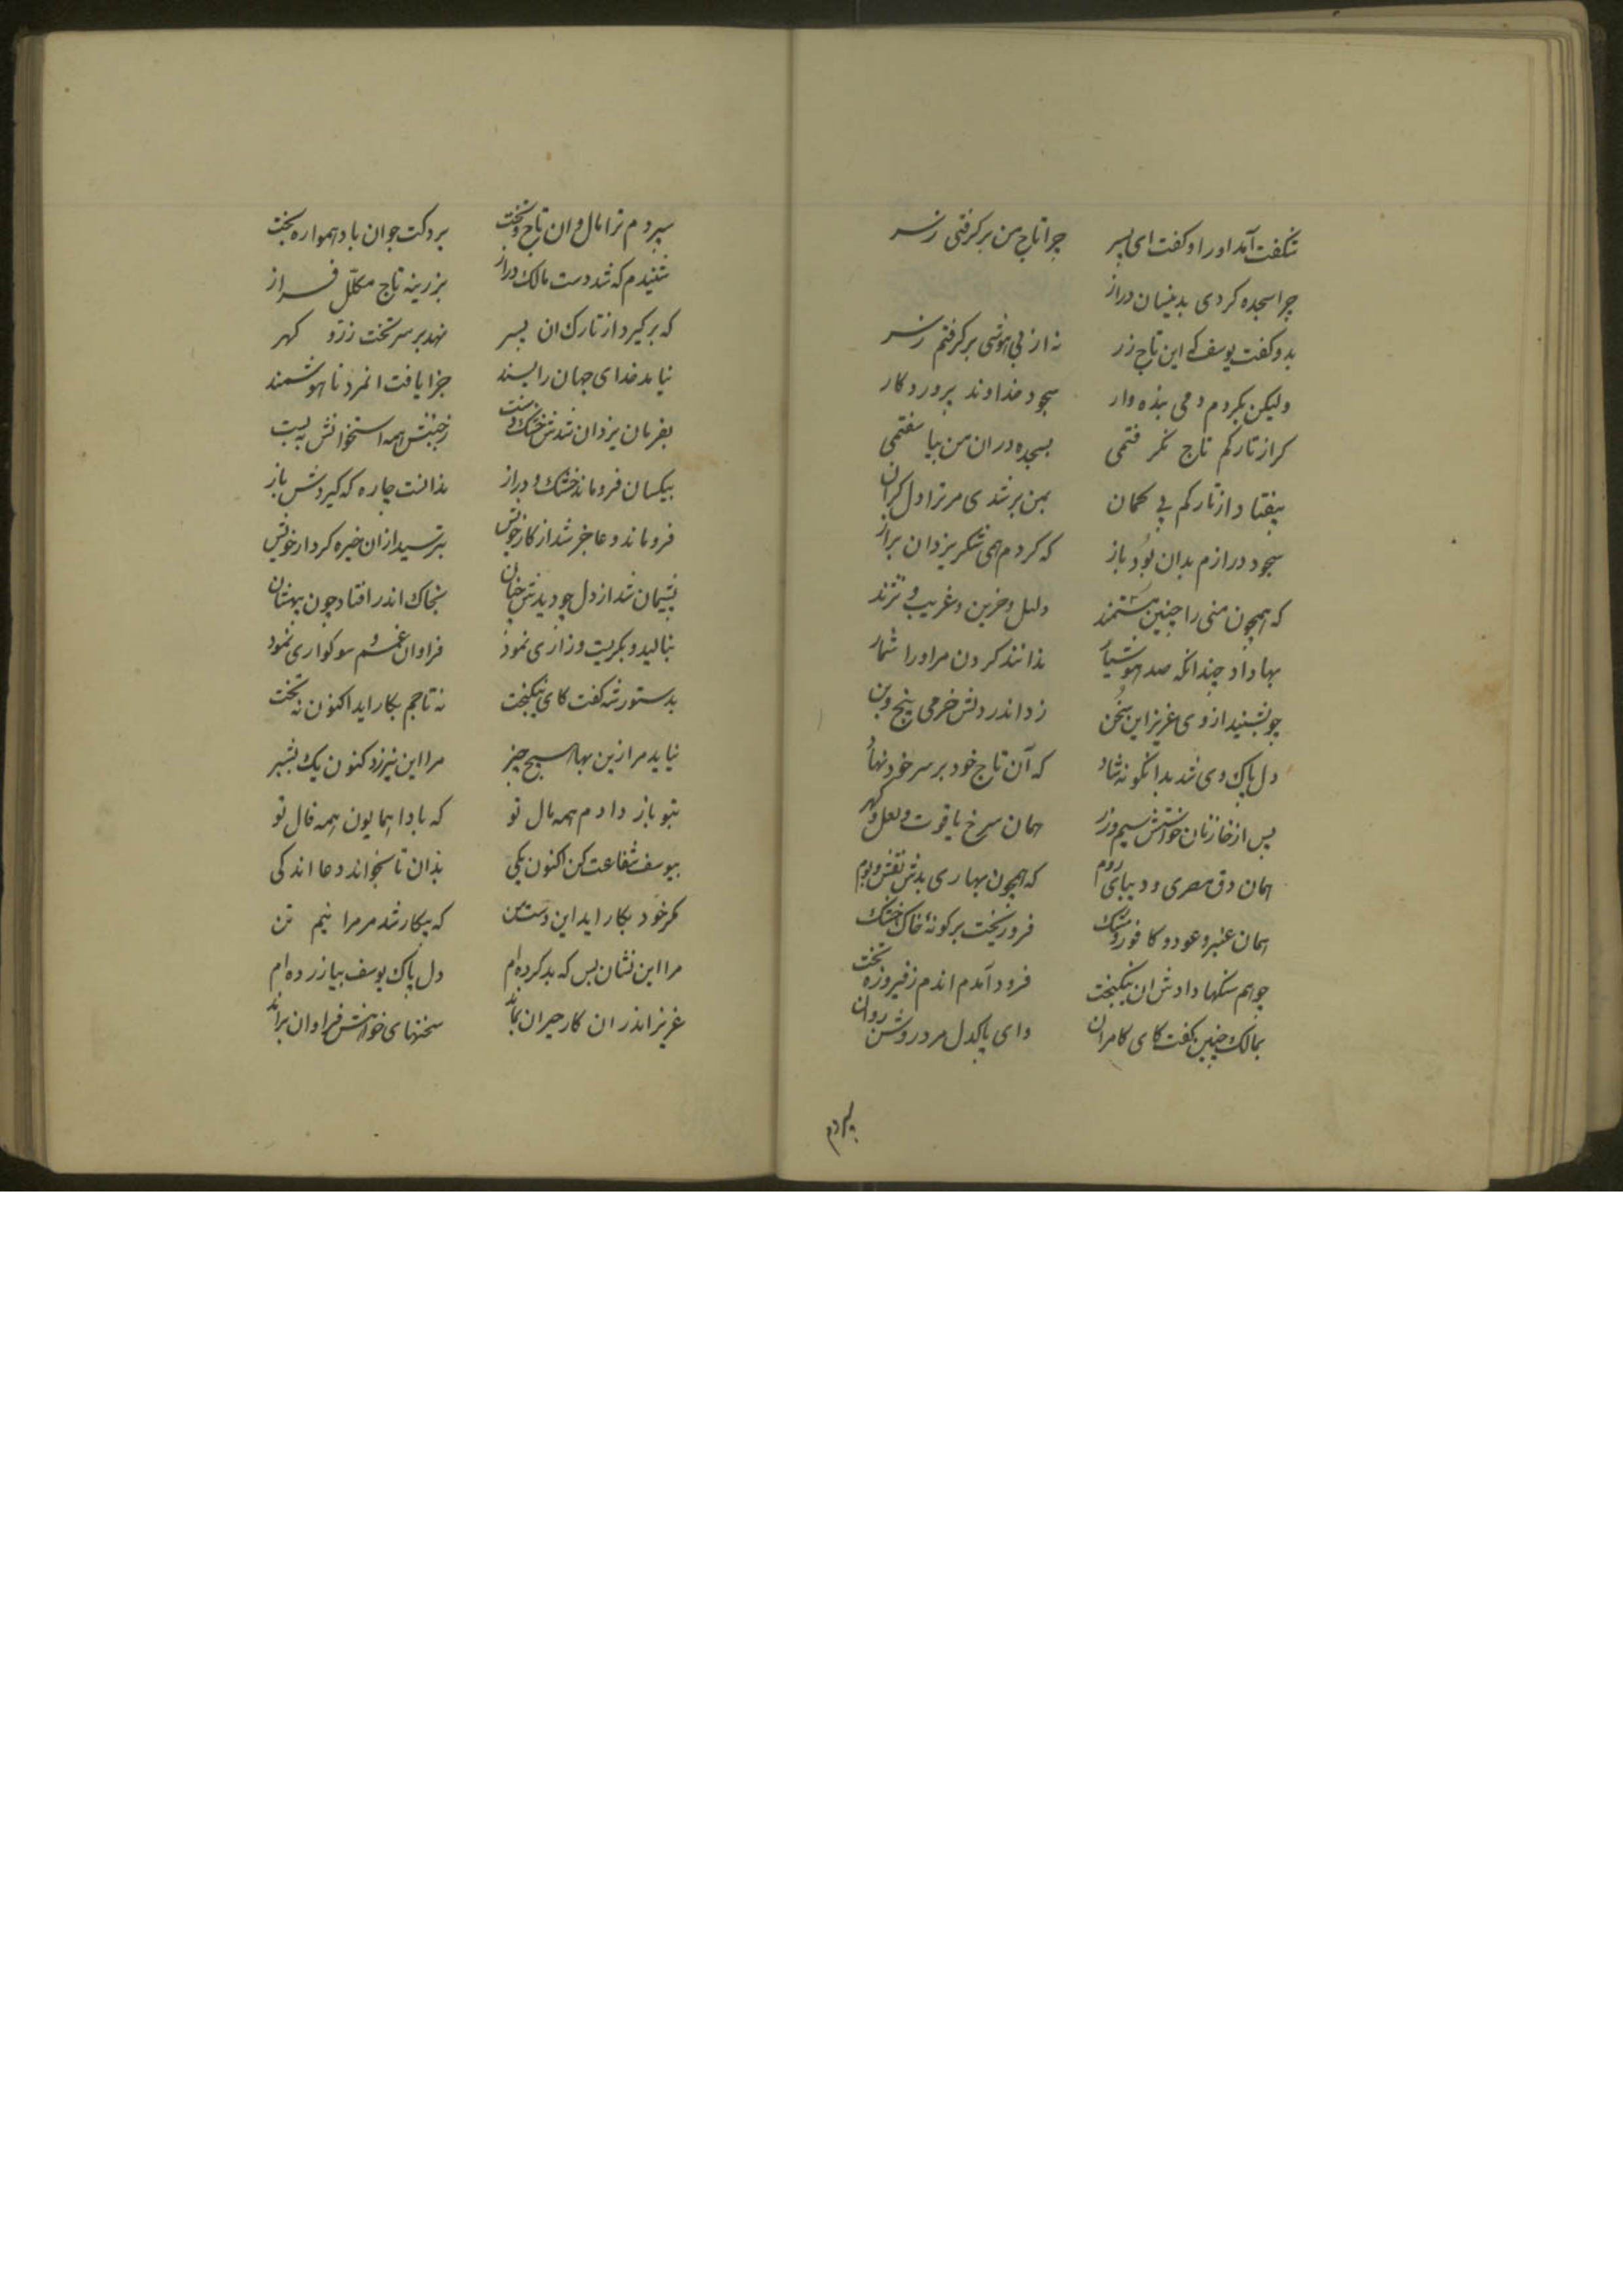 شکفت آمد اورا و کفت ای پسر چرا تاج من بر کرفتی ز سر
چرا سجده کردی بدینسان دراز
بدو کفت یوسف که این تاج زر نه از بی هوشی بر کرفتم ز سر
ولیکن بکردم دمی بنده وار سجود خداوند پروردکار
کر از تارکم تاج نکر فتمی بسجده دران من بیا سفتمی
بیفتاد از تارکم بی کمان بمن بر شدی مر ترا دل کران
سجود درازم بدان بود باز که کردم همی شکر یزدان براز
که همچون منی را چنین مستمند ذلیل و حزین و غریب و نژند
بها داد چندانکه صد هوشیار ندانند کردن مر اورا شمار
چو بشنید از وی عزیز این سخن زد اندر دلش خرمی بیخ و بن
دل پاک وی شد بدانکونه شاد که آن تاج خود بر سر خود نهاد
پس از خازنان خواستش سیم و زر همان سرخ یاقوت و لعل و کهر
همان دق مصری و دیبای روم که همچون بهاری بدش نقش و بوم
همان عنبر و عود و کافور و مشک فرو ریخت بر کونهٔ خاک خشک
چو هم سنکها دادش ان نیکبخت فرود آمدم اندم ز فیروزه تخت
بمالک چنین کفت کای کامران وای پاکدل مرد روشن روان
سپردم
سپردم ترا مال و ان تاج و تخت بردکت جوان باد همواره بخت
شنیدم که شد دست مالک دراز بزرینه تاج مکلّل فراز
که بر کیرد از تارک ان پسر نهد بر سر تخت زر و کهر
نیامد خدای جهان را پسند جزا یافت انمرد ناهوشمند
بفرمان یزدان شدش خشک دست ز جنبش همه استخوانش به بست
بیکسان فرو ماند خشک و دراز ندانست چاره که کیردش باز
فرو ماند و عاجز شد از کار خویش بترسید ازان خیره کردار خویش
پشیمان شد از دل چو دیدش چنان بخاک اندر افتاد چون بیهشان
بنالید و بکریست و زاری نمود فراوان غم و سوکواری نمود
بدستور شه کفت کای نیکبخت نه تاجم بکار اید اکنون نه تخت
نیاید مرا زین بها هیچ چیز مرا این نیرزد کنون یک پشیز
بتو باز دادم همه مال تو که بادا همایون همه فال تو
بیوسف شفاعت کن اکنون یکی بدان تا بخواند دعا اندکی
مکر خود بکار اید این دست من که بیکار شد مر مرا نیم تن
مرا این نشان بس که بد کرده ام دل پاک یوسف بیازرده ام
عزیز اندر ان کار حیران بماند سخنهای خواهش فراوان براند